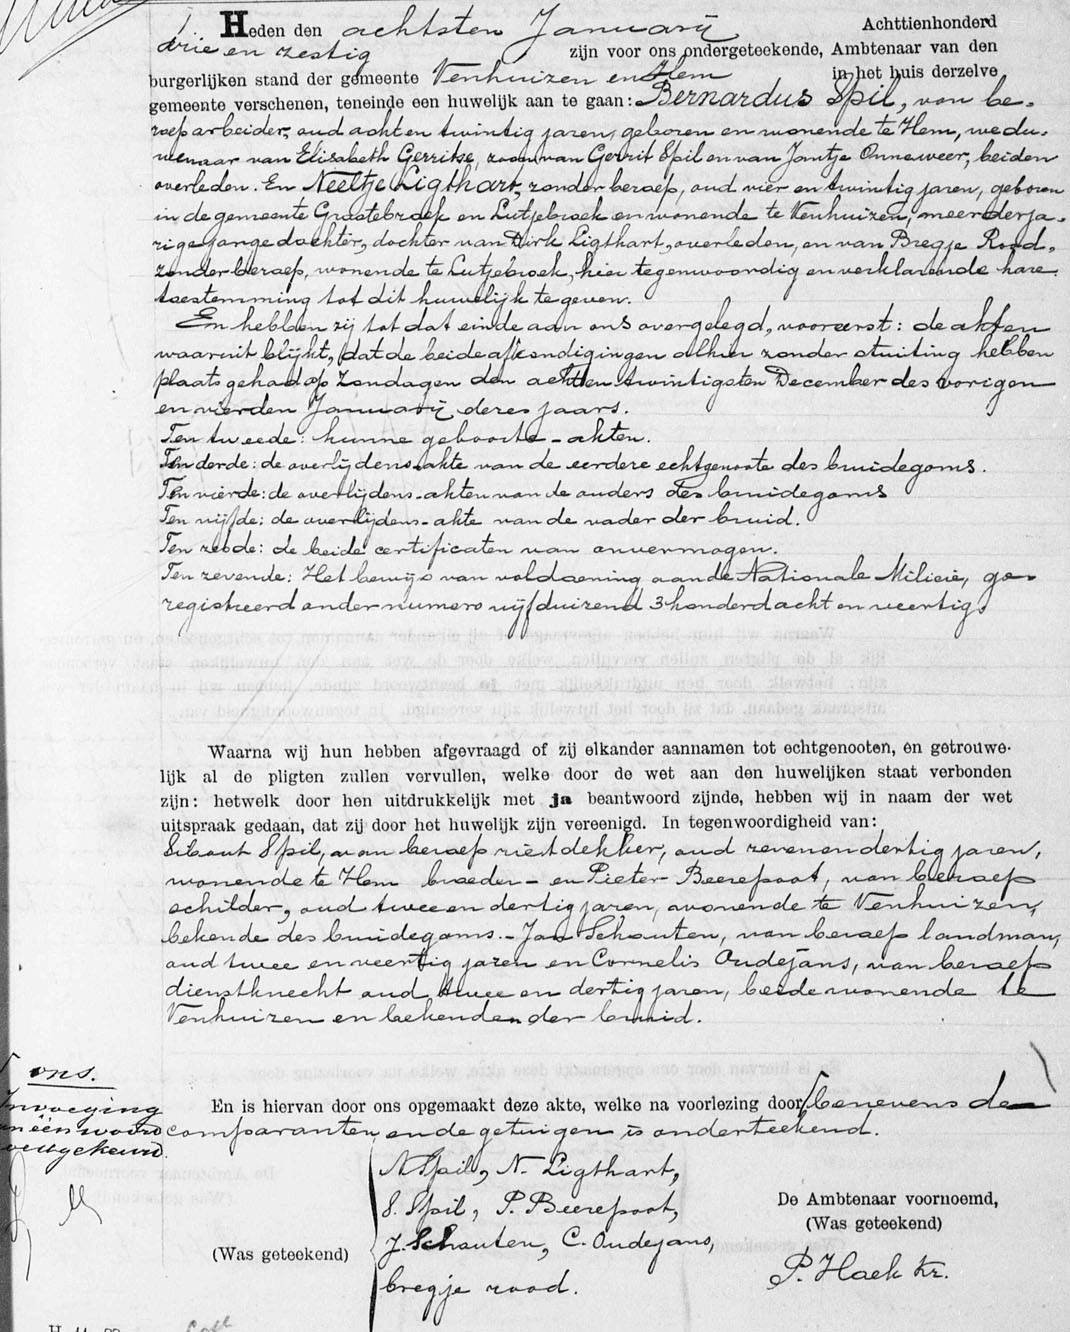 Heden den achtsten Januarij Achttienhonderd
drie en zestig zijn voor ons ondergeteekende, Ambtenaar van den
burgerlijken stand der gemeente Venhuizen en Hem in het huis derzelve
gemeente verschenen, teneinde een huwelijk aan te gaan: Bernardus Spil, van be-
roep arbeider, oud acht en twintig jaren, geboren en wonende te Hem, wedu-
wenaar van Elisabeth Gerritse, zoon van Gerrit Spil en van Jantje Onneweer, beiden
overleden. En Neeltje Ligthart, zonder beroep, oud vier en twintig jaren, geboren
in de gemeente Grootebroek en Lutjebroek en wonende te Venhuizen, meerderja-
rige jonge dochter, dochter van Dirk Ligthart, overleden, en van Bregje Rood,
zonder beroep, wonende te Lutjebroek, hier tegenwoordig en verklarende hare
toestemming tot dit huwelijk te geven.
En hebben zij tot dat einde aan ons overgelegd, vooreerst: de akten
waaruit blijkt, dat de beide afkondigingen alhier zonder stuiting hebben
plaats gehad op Zondagen den acht en twintigsten December des vorigen
en vierden Januarij dezes jaars.
Ten tweede: hunne geboorte-akten.
Ten derde: de overlijdens-akte van de eerdere echtgenoote des bruidegoms.
Ten vierde: de overlijdens-akten van de ouders des bruidegoms
Ten vijfde: de overlijdens-akte van de vader der bruid.
Ten zesde: de beide certificaten van onvermogen.
Ten zevende: Het bewijs van voldoening aan de Nationale Militie, ge-
registreerd onder numero vijfduizend 3honderd acht en veertig.
Waarna wij hun hebben afgevraagd of zij elkander aannamen tot echtgenooten, en getrouwe-
lijk al de pligten zullen vervullen, welke door de wet aan den huwelijken staat verbonden
zijn: hetwelk door hen uitdrukkelijk met ja beantwoord zijnde, hebben wij in naam der wet
uitspraak gedaan, dat zij door het huwelijk zijn vereenigd. In tegenwoordigheid van:
Sibout Spil, van beroep rietdekker, oud zevenendertig jaren,
wonende te Hem broeder- en Pieter Beerepoot, van beroep
schilder, oud twee en dertig jaren, wonende te Venhuizen,
bekende des bruidegoms.- Jan Schouten, van beroep landman,
oud twee en veertig jaren en Cornelis Oudejans, van beroep
dienstknecht oud twee en dertig jaren, beide wonende te
Venhuizen en bekenden der bruid.
ons.
Invoeging
van één woord
goedgekeurd.
En is hiervan door ons opgemaakt deze akte, welke na voorlezing door benevens de
comparanten en de getuigen is onderteekend.
(Was geteekend)
Spil, N. Ligthart,
S. Spil, P. Beerepoot,
J. Schouten, C. Oudejans,
bregje rood.
De Ambtenaar voornoemd,
(Was geteekend)
P. Haek Kz.